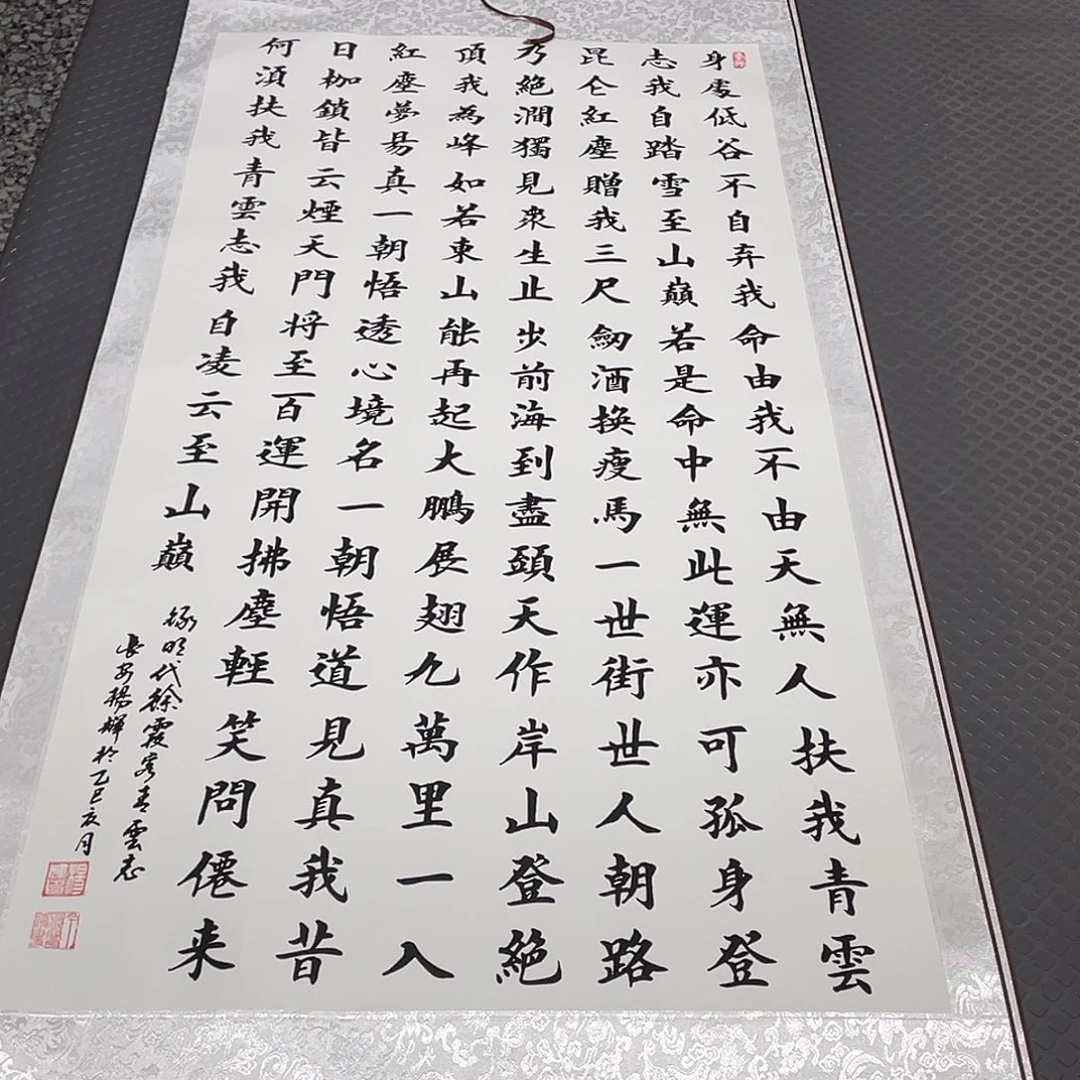 身處低谷不自弃我命由我不由天無人扶我青雲
志我自踏雪至山巔若是命中無此運亦可孤身登
昆仑紅塵贈我三尺劒酒換瘦馬一世街世人朝路
乃絕澗獨見衆生止步前海到盡頭天作岸山登絕
頂我為峰如若東山能再起大鵬展翅九萬里一入
紅塵夢易真一朝悟透心境名一朝悟道見真我昔
日枷鎖皆云煙天門将至百運開拂塵輕笑問僊来
何湏扶我青雲志我自凌云至山巔
録明代徐霞客青雲志
長安楊輝於乙巳亥月